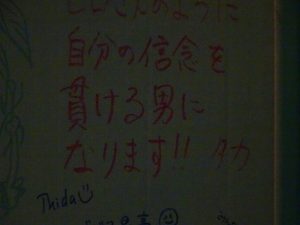 さんのように
自分の信念を
貫ける男に
なります!! タカ
Thida